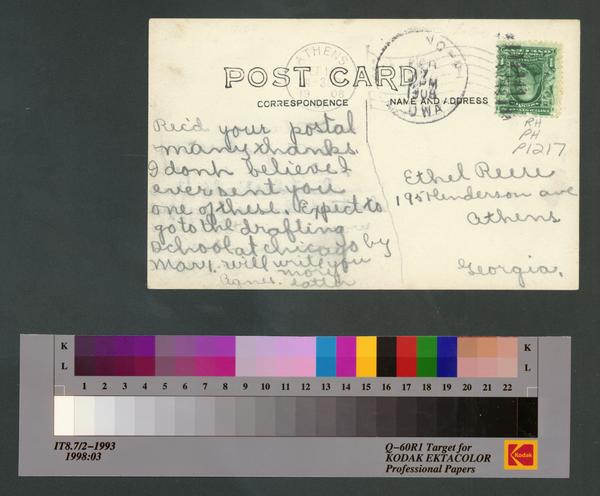 POST CARD
CORRESPONDENCE
NAME AND ADDRESS
ATHENS
1908
FEB
7
PM
1908
OWA
RH
PH
P1217
Rec'd your postal
many thanks.
I don't believe I
ever sent you
one of these. Expect to
go to the drafting
school at chicago by
Mar 1. will write you
more
later
Agnes.
Ethel Reese
195 Henderson ave
Athens
Georgia.
K
L
1 2 3 4 5 6 7 8 9 10 11 12 13 14 15 16 17 18 19 20 21 22
K
L
IT8.7/2-1993
1998:03
Q-60R1 Target for
KODAK EKTACOLOR
Professional Papers
Kodak